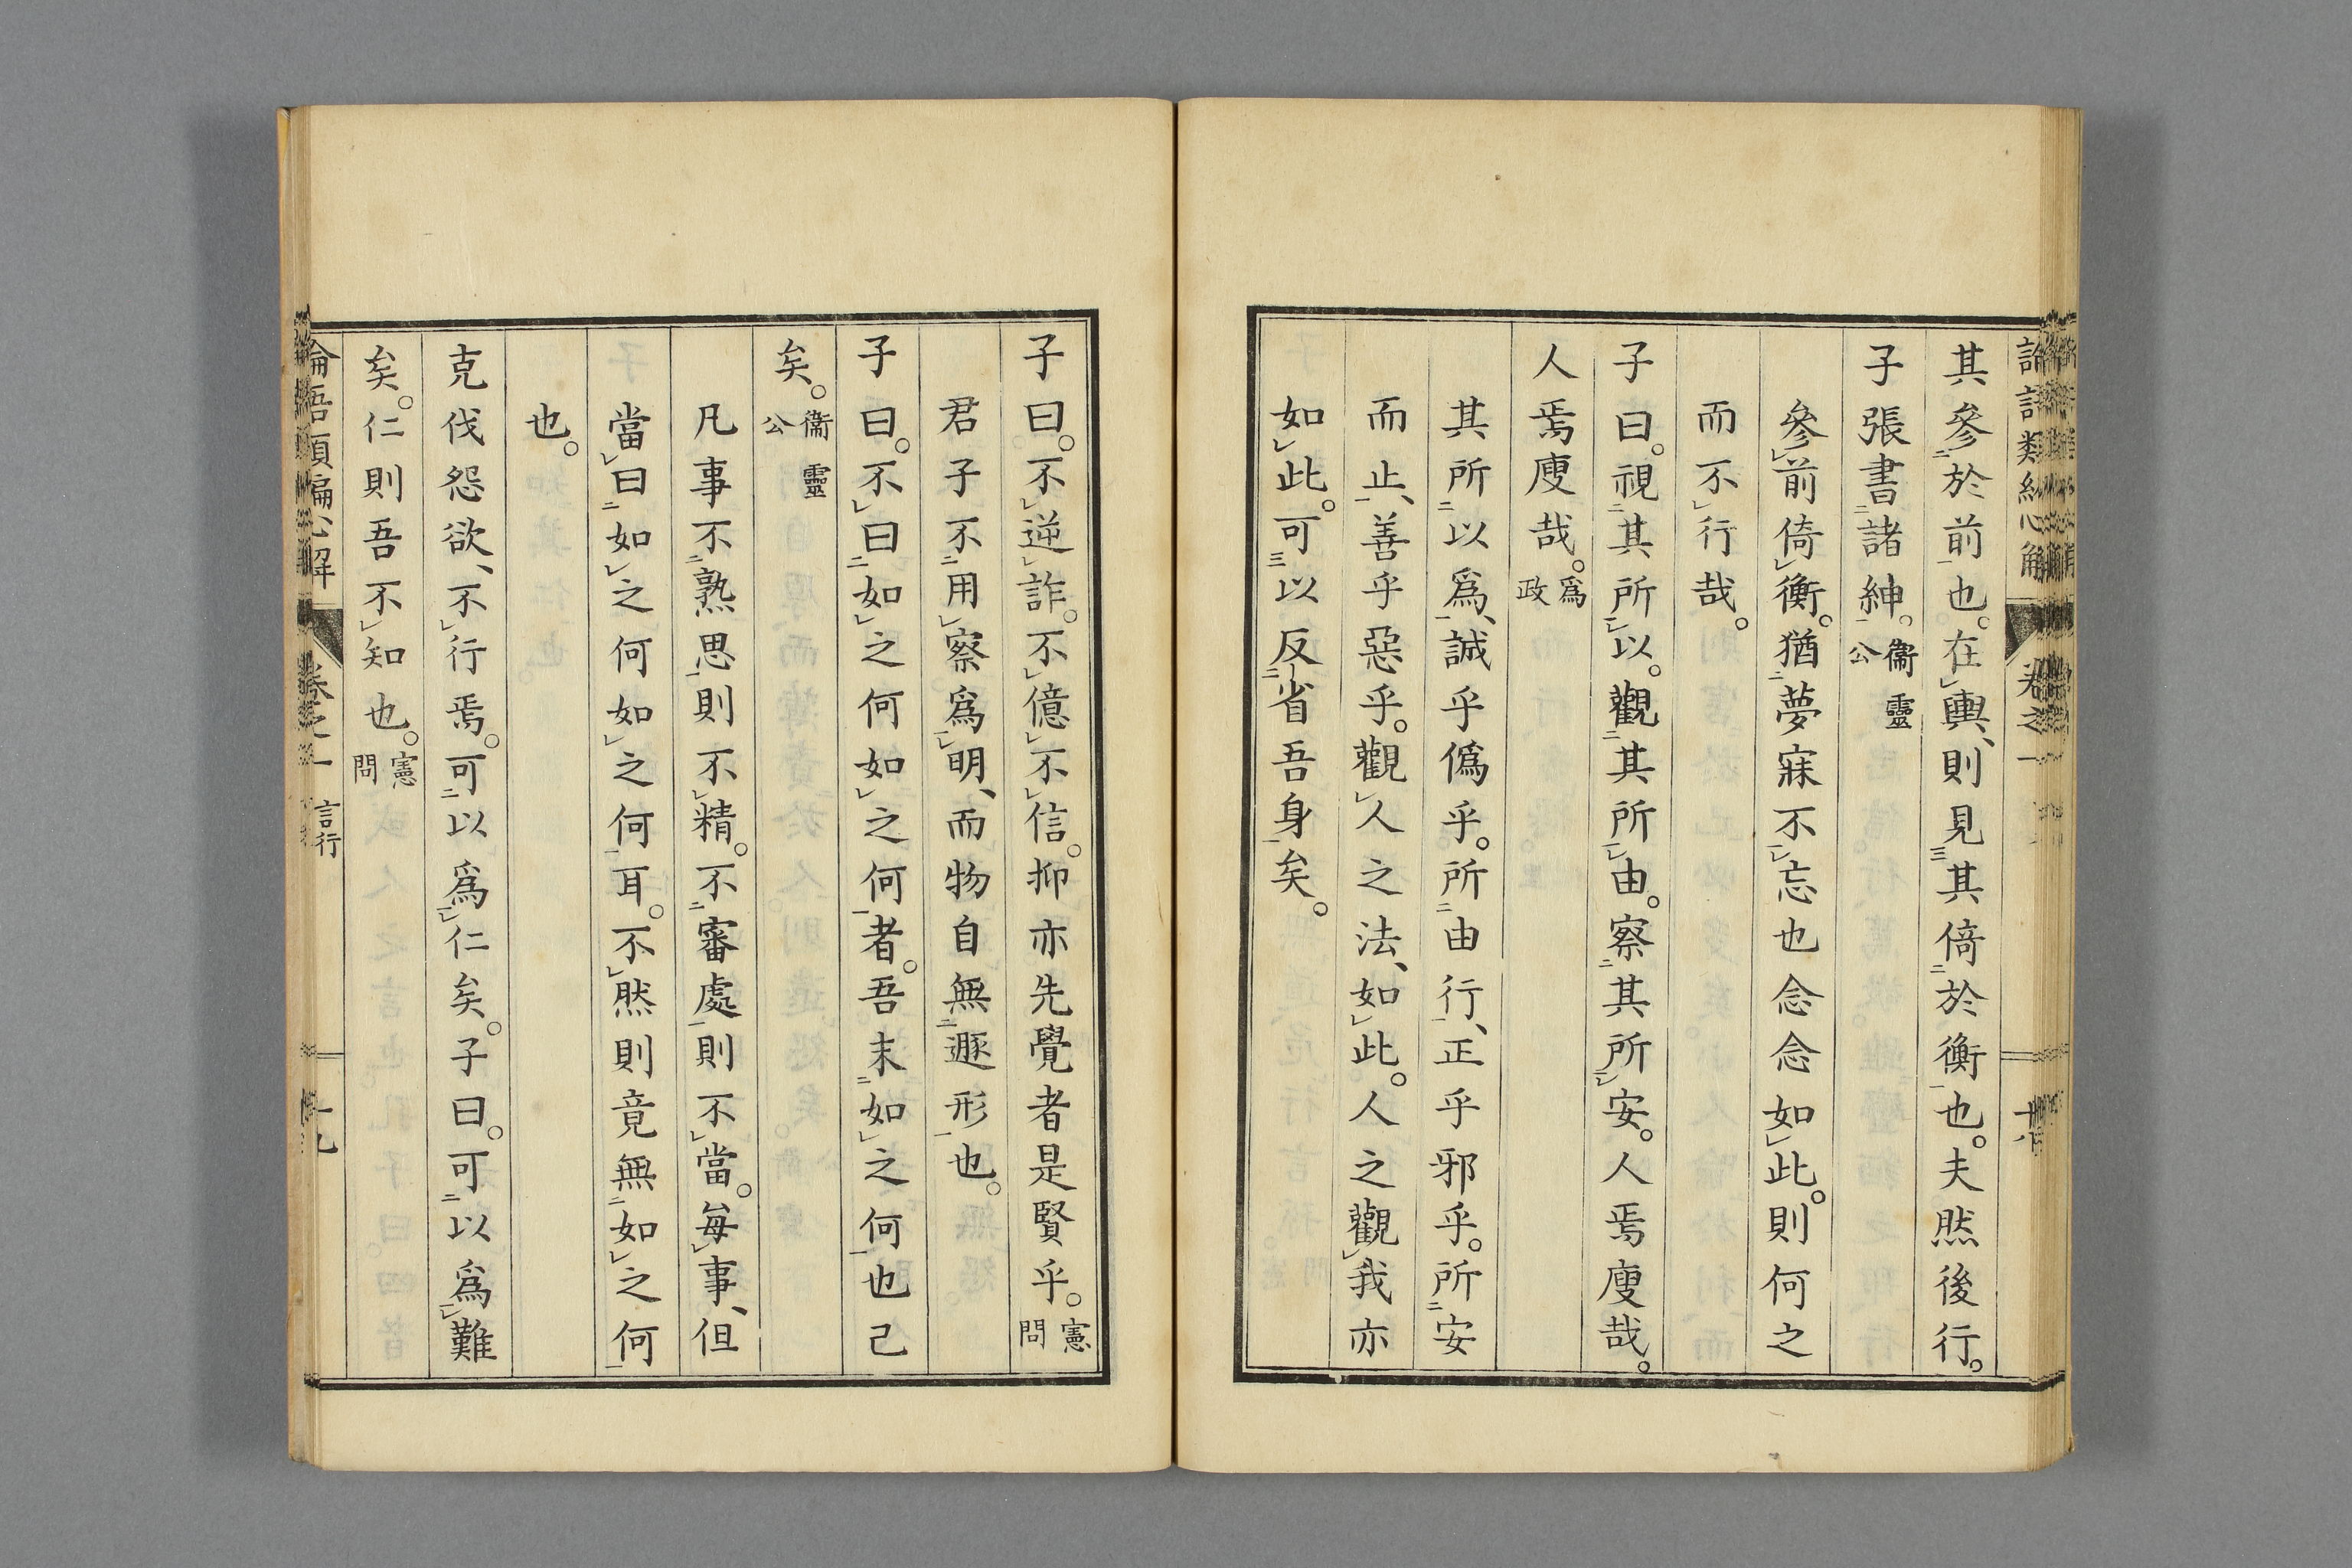 其參於前也。在輿、則見其倚於衡也。夫然後行。
子張書諸紳。衞靈公
參前倚衡。猶夢寐不忘也念念如此。則何之
而不行哉。
子曰。視其所以。觀其所由。察其所安。人焉廋哉。
人焉廋哉。爲政
其所以爲、誠乎僞乎。所由行、正乎邪乎。所安
而止、善乎惡乎。觀人之法、如此。人之觀我亦
如此。可以反省吾身矣。
子曰。不逆詐。不億不信。抑亦先覺者是賢乎。憲問
君子不用察爲明、而物自無遯形也。
子曰。不曰如之何如之何者。吾末如之何也已
矣。衞靈公
凡事不熟思則不精。不審處則不當。每事、但
當曰如之何如之何耳。不然則竟無如之何
也。
克伐怨欲、不行焉。可以爲仁矣。子曰。可以爲難
矣。仁則吾不知也。憲問
卷之一 言行